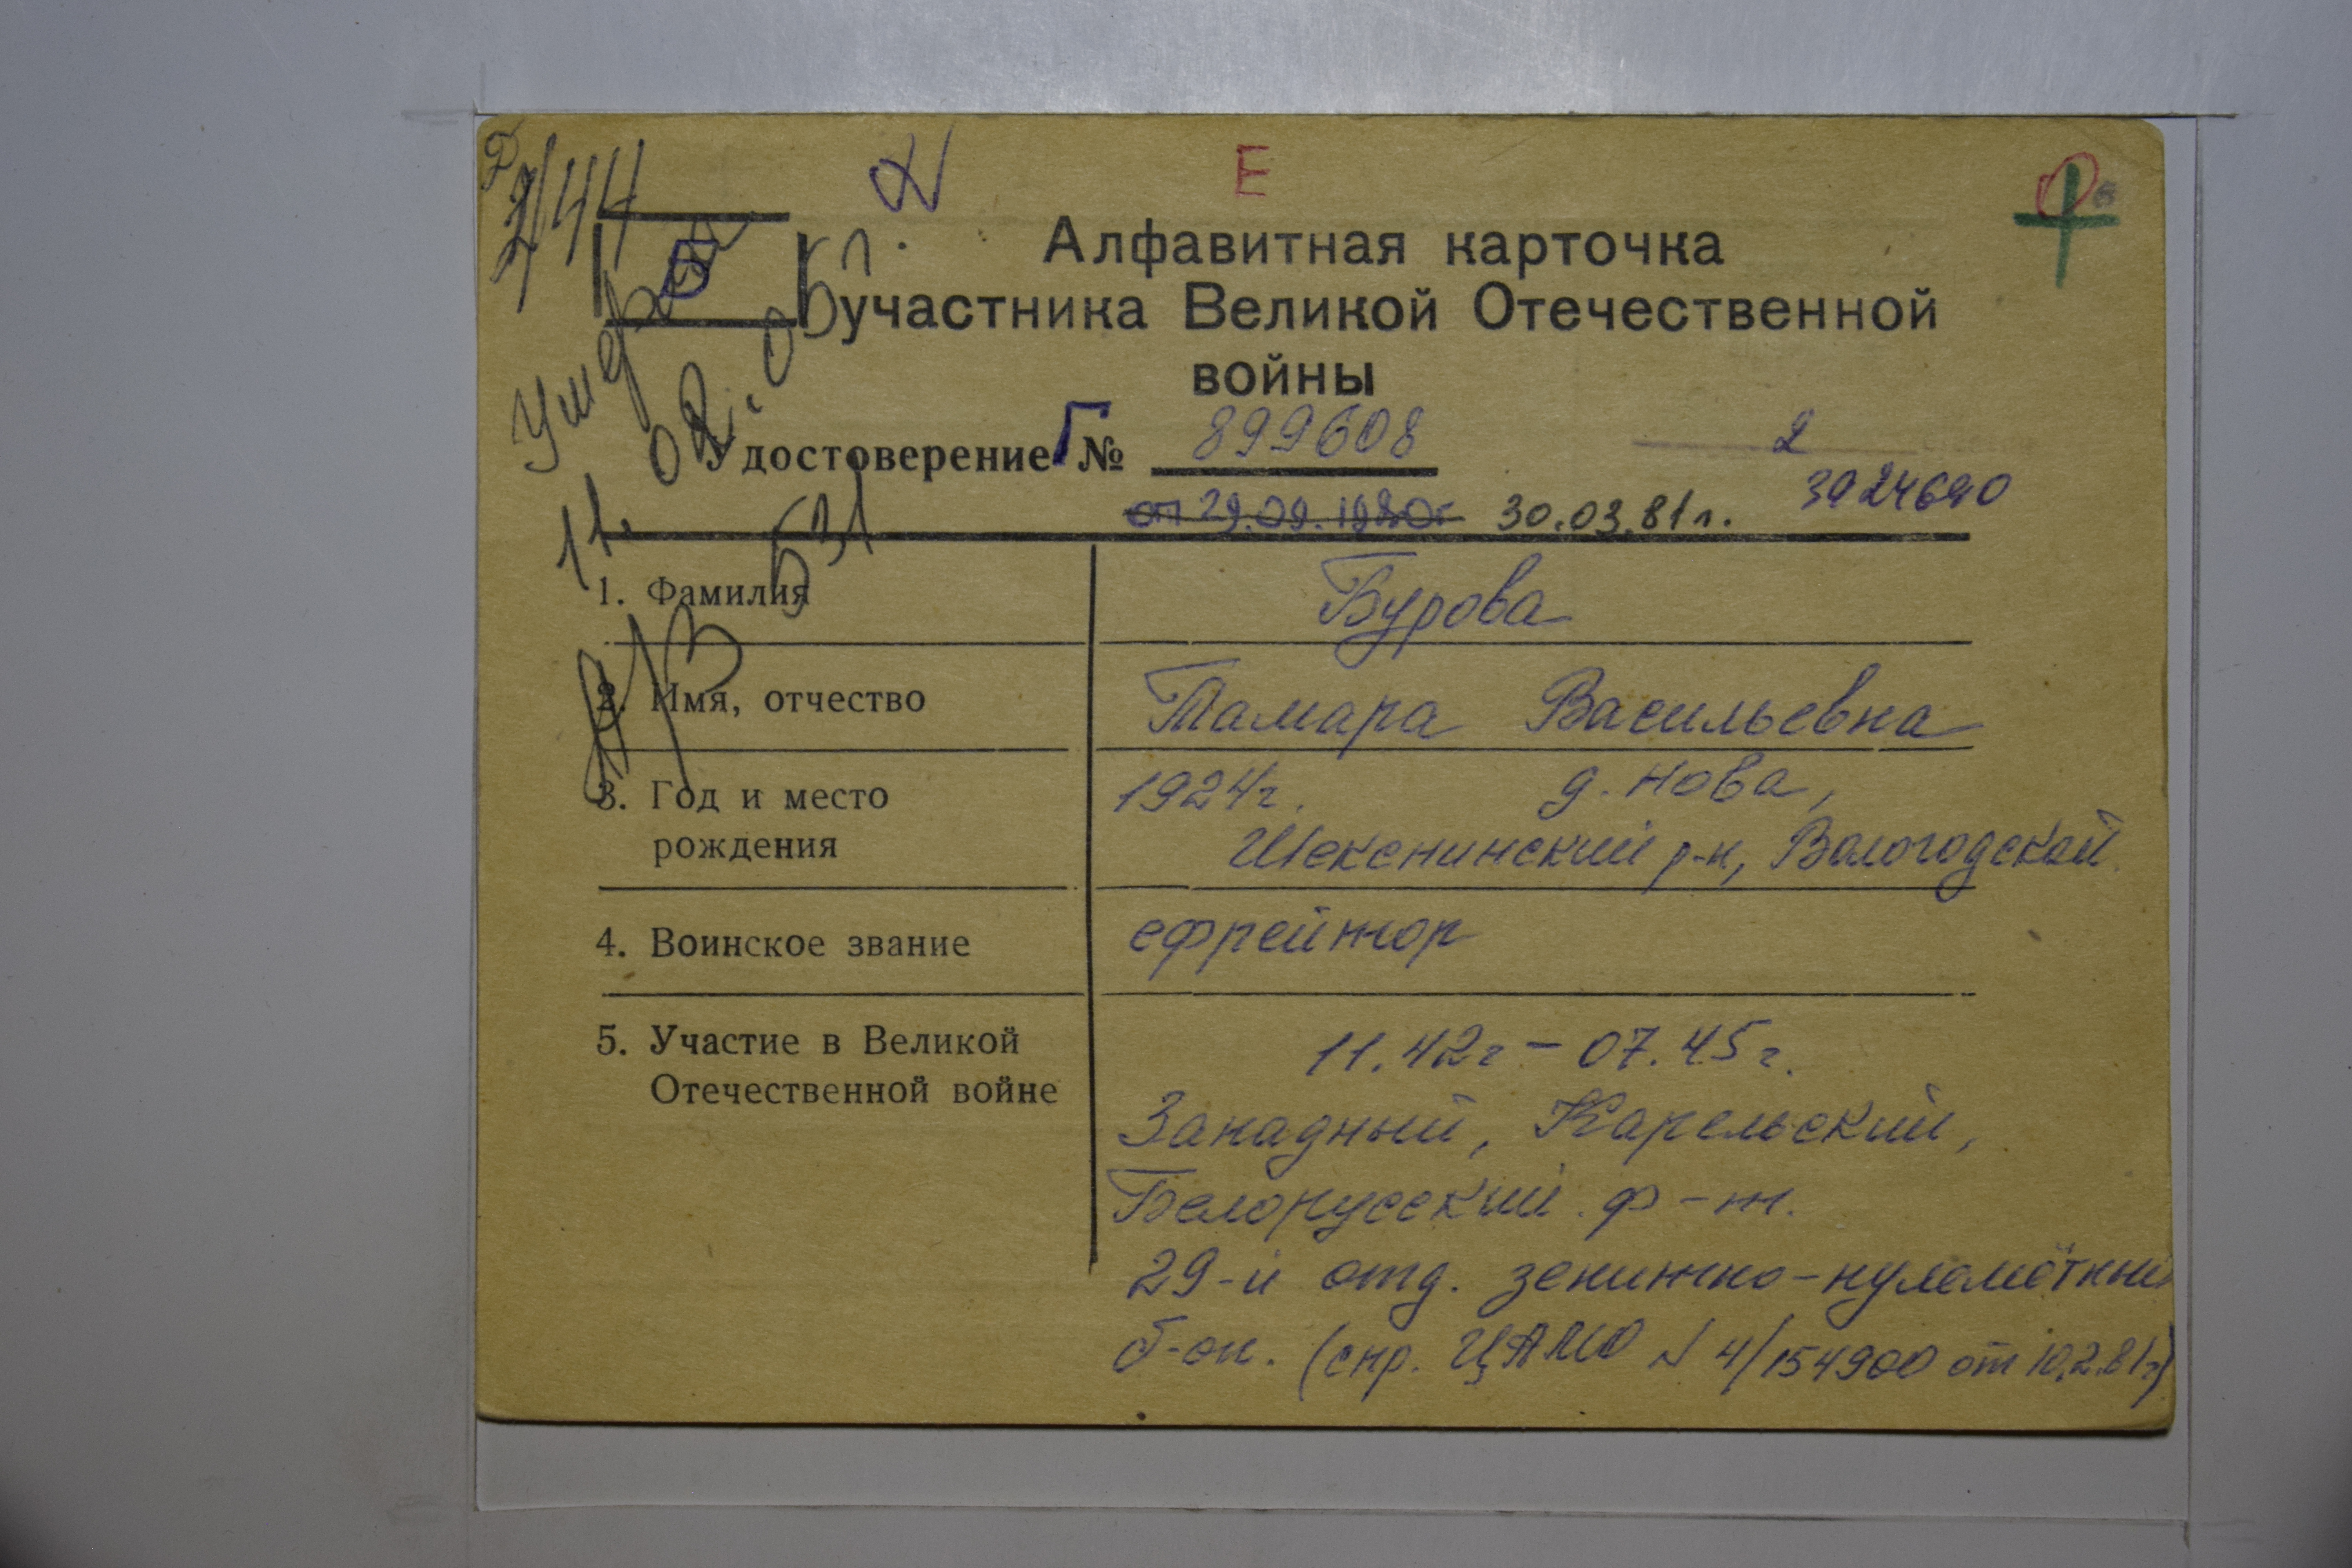 Р
3/44
Е
Б
Алфавитная карточка
участника Великой Отечественной
войны
Умерла
11. 02. 05г.
Удостоверение Г № 899608
2
от 29.09.1980г 30.03.81г.
3924690
531
1. Фамилия Бурова
2. Имя, отчество Тамара Васильевна
3. Год и место 1924г. д. Нова,
рождения Шекснинский р-н, Вологодской
4. Воинское звание ефрейтор
5. Участие в Великой 11.42г – 07.45г.
Отечественной войне Западный, Карельский,
Белорусский ф-т.
29-й отд. зенитно-пулемётный
б-он. (спр. ЦАМО N 4/154900 от 10.2.81г)